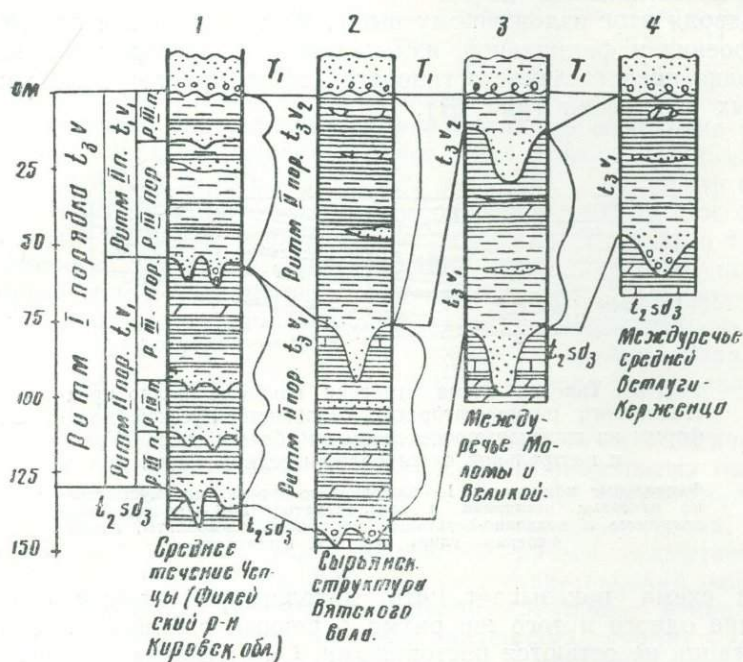 1
2
3
4
T₁
T₁
T₁
0м
25
50
75
100
125
150
Ритм I порядка t₃v
Ритм II п. t₃v₂
р. III п.
р. III пор.
Ритм II пор. t₃v₁
р. III. пор.
р. III п.
р. III п.
t₂sd₃
t₂sd₃
Ритм II пор. t₃v₂
Ритм II пор. t₃v₁
t₃v₂
t₃v₁
t₂sd₃
t₃v₁
t₂sd₃
Среднее
течение Чеп-
цы (Филей
ский р-н
Кировск. обл.)
Сырьянск.
структура
Вятского
вала.
Между-
речье Мо-
ломы и
Великой.
Междуречье
средней
Ветлуги-
Керженца